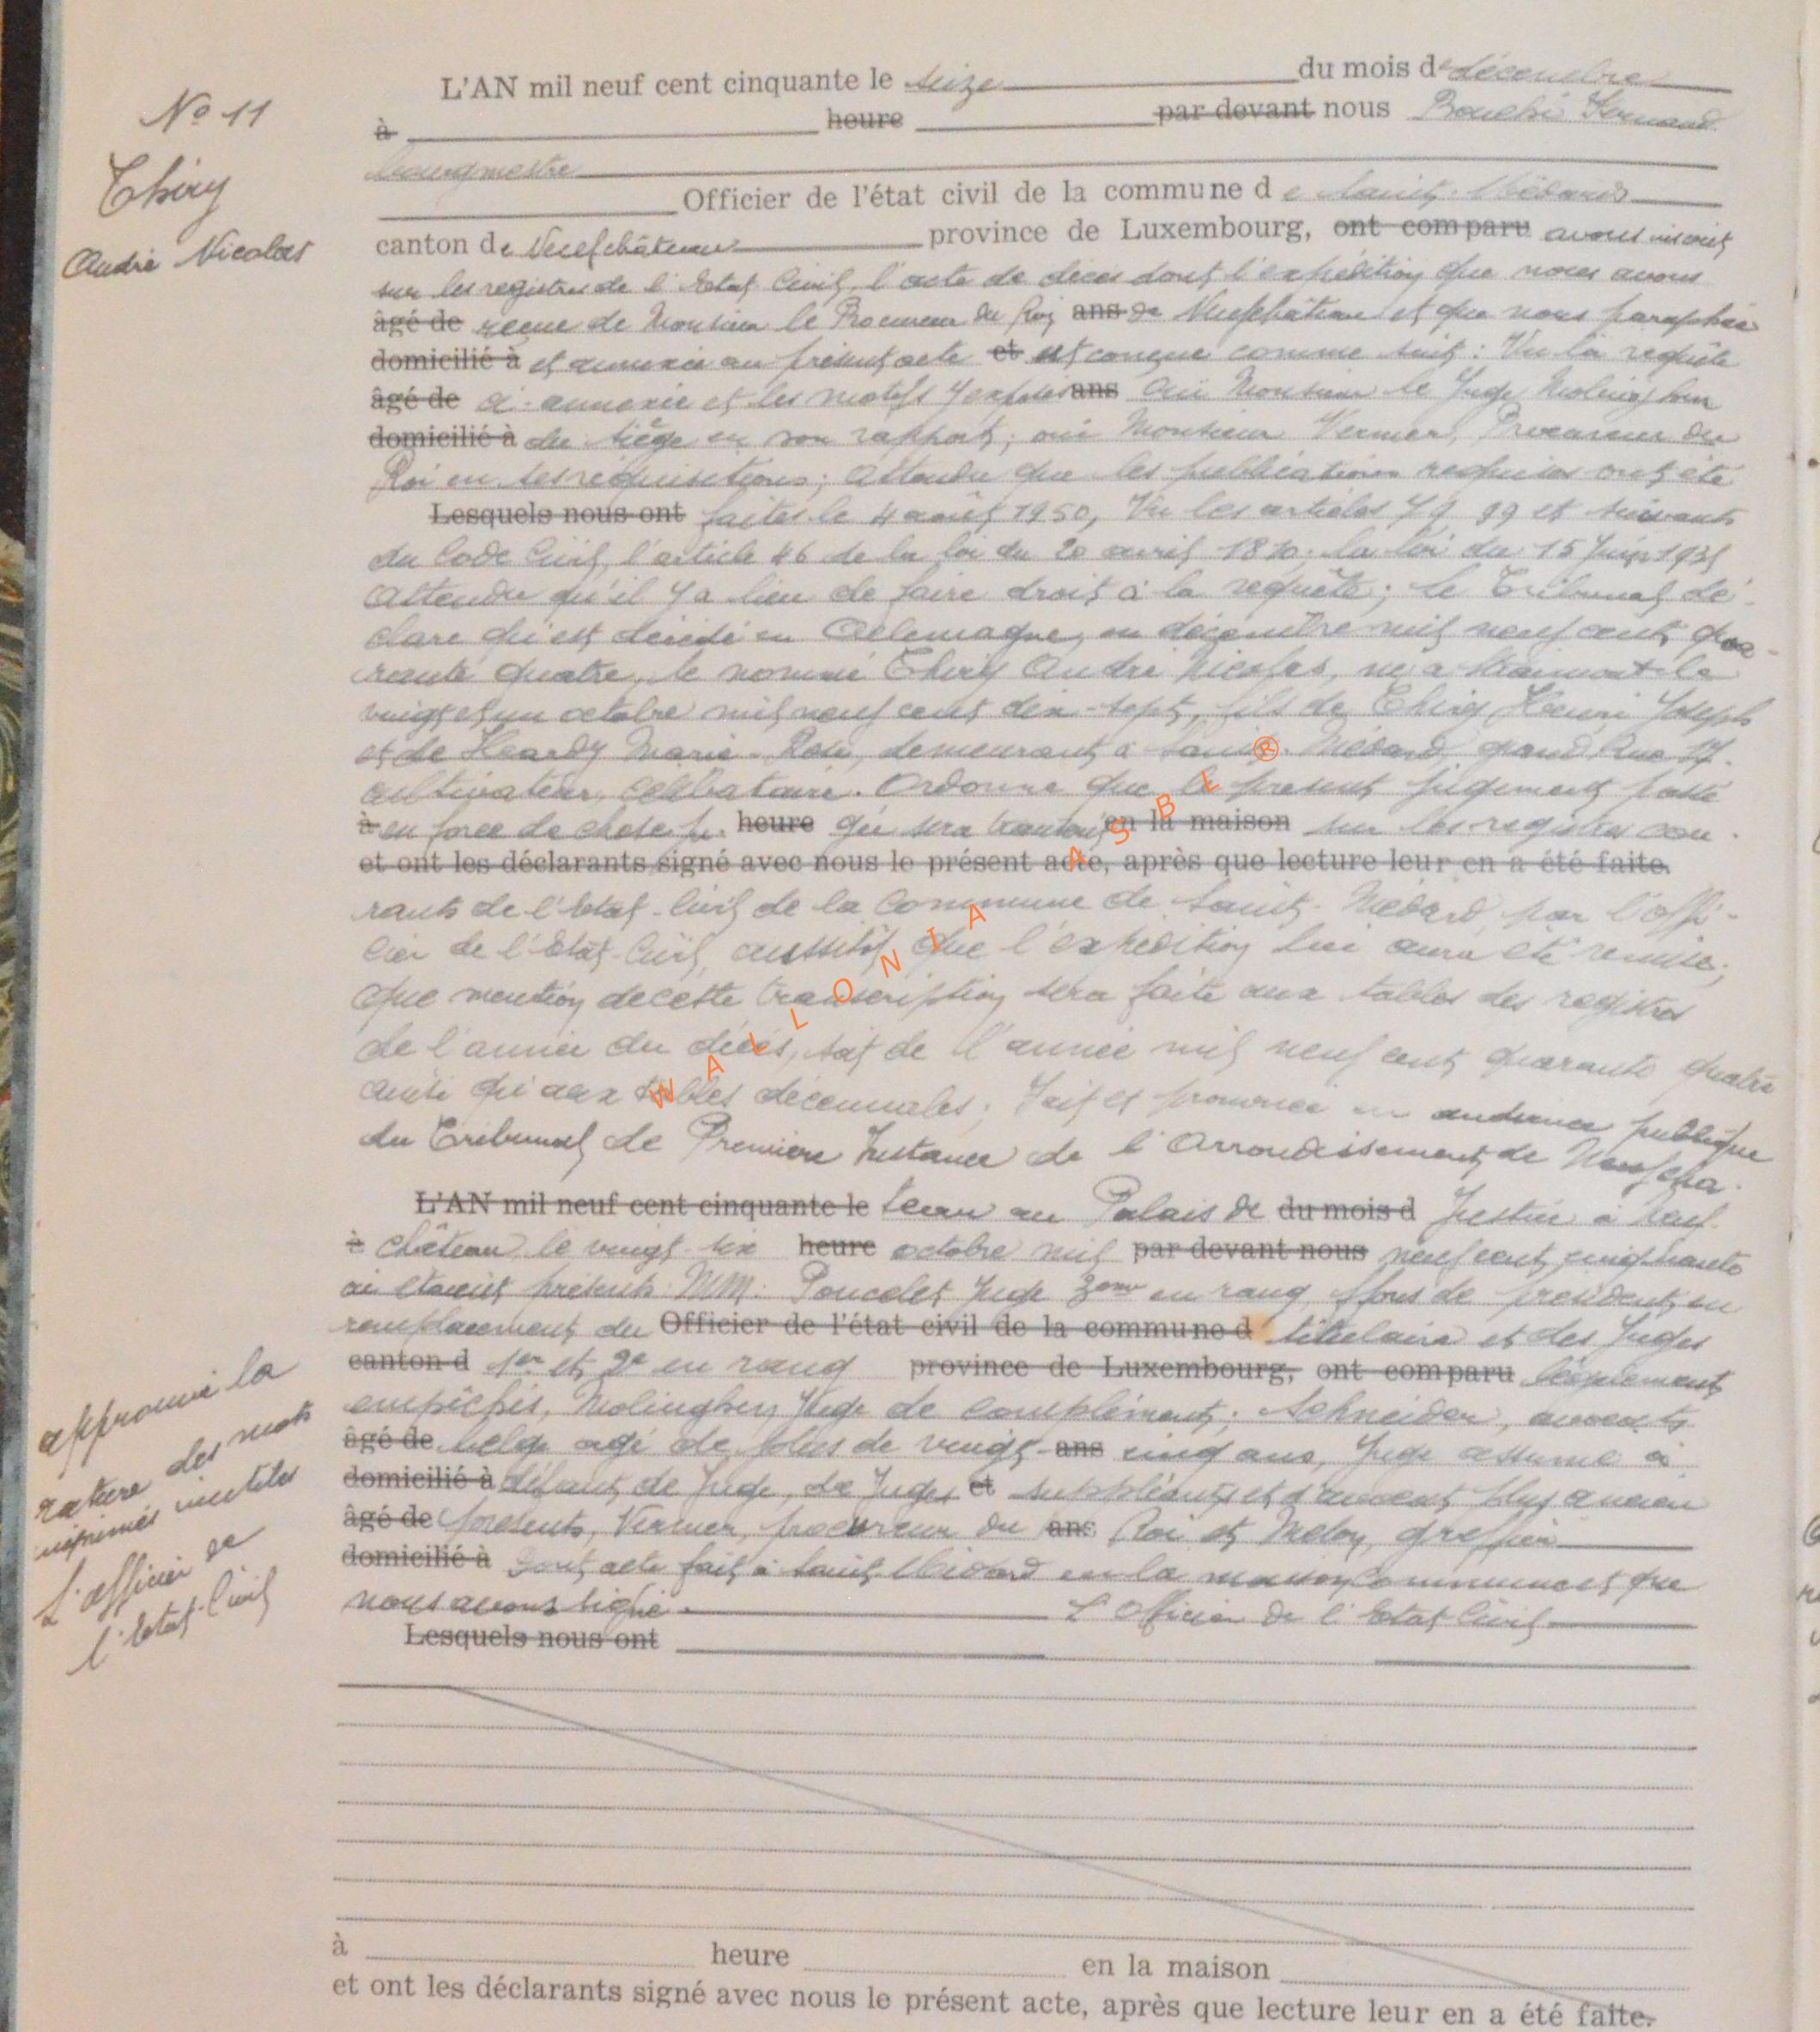 N° 11
Thiry
André Nicolas
L'AN mil neuf cent cinquante le seize du mois de décembre
à heure par devant nous Fernand
bourgmestre
Officier de l'état civil de la commune de Saint-Médard
canton de Neufchâteau province de Luxembourg, ont comparu avons inscrit
sur les registres de l'Etat Civil, l'acte de décès dont l'expédition que nous avons
âgé de reçue de Monsieur le Procureur du Roi ans de Neufchâteau et que nous paraphée
domicilié à et annexée au présent acte et est conçue comme suit : Vu la requête
âgé de ci-annexée et les motifs y exposés ans Oui Monsieur le Juge
domicilié à du siège en son rapport; oui Monsieur Vermer, Procureur du
Roi en ses réquisitions; Attendu que les publications requises ont été
Lesquels nous ont faites le 4 août 1950, Vu les articles 99 et suivants
du Code Civil, l'article 46 de la loi du 20 avril 1810; la loi du 15 Juin 1935
Attendu qu'il y a lieu de faire droit à la requête; Le Tribunal dé-
clare qu'est décédé en Allemagne, en décembre mil neuf cent qua-
rante quatre, le nommé Thiry André Nicolas, né à Straimont le
vingt et un octobre mil neuf cent dix-sept, fils de Thiry Henri Joseph
et de Heardy Marie-Rose, demeurant à Saint-Médard, grand Rue 17.
cultivateur, célibataire. Ordonne que le présent jugement passé
à en force de chose heure qui sera en la maison sur les registres cou-
et ont les déclarants signé avec nous le présent acte, après que lecture leur en a été faite.
rants de l'Etat-Civil de la Commune de Saint-Médard, par l'Offi-
cier de l'Etat-Civil, aussitôt que l'expédition lui aura été remise;
que mention de cette transcription sera faite aux tables des registres
de l'année du décès, soit de l'année mil neuf cent quarante quatre
ainsi qu'aux tables décennales; Fait et prononcé en audience publique
du Tribunal de Première Instance de l'Arrondissement de Neufchâ-
L'AN mil neuf cent cinquante le teau au Palais de du mois d Justice à Neuf-
à château, le vingt-six heure octobre mil par devant nous neuf cent cinquante
où étaient présents MM. Poncelet Juge 3eme en rang, ffons de président, en
remplacement du Officier de l'état civil de la commune d titulaire et des Juges
canton d 1er et 2e en rang province de Luxembourg, ont comparu légalement
empêchés, Molinghen Juge de complément; Schneider, avocat
âgé de belge agé de plus de vingt-ans cinq ans, Juge assumé à
domicilié à défaut de Juge, de Juges et suppléants et d'avocat plus ancien
âgé de présents, Vermer, procureur du ans Roi et Meloy, greffier
domicilié à Dont acte fait à Saint-Médard en la maison Communale et que
nous avons signé. L'Officier de l'Etat Civil
Lesquels nous ont
approuvé la
rature des mots
imprimés inutiles
L'officier de
l'Etat-Civil
à heure en la maison
et ont les déclarants signé avec nous le présent acte, après que lecture leur en a été faite.
WALLONIA ASBL ®